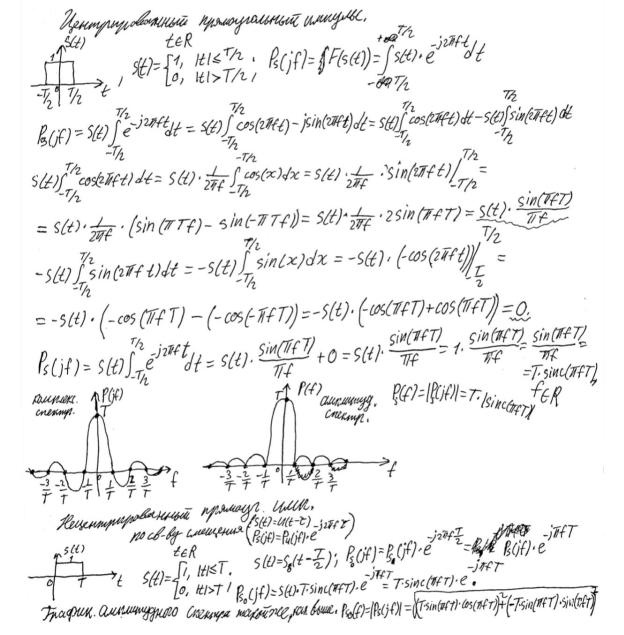 Центрированный прямоугольный импульс.
s(t) 1 -T/2 0 T/2 t , s(t) = {1, |t| ≤ T/2; 0, |t| > T/2, t∈R . Ps(jf) = F(s(t)) = ∫ s(t)·e^{-j2πft} dt
Ps(jf) = s(t) ∫_{-T/2}^{T/2} e^{-j2πft} dt = s(t) ∫_{-T/2}^{T/2} cos(2πft) - jsin(2πft) dt = s(t) ∫_{-T/2}^{T/2} cos(2πft) dt - s(t) ∫_{-T/2}^{T/2} sin(2πft) dt
s(t) ∫_{-T/2}^{T/2} cos(2πft) dt = s(t) · 1/2πf ∫_{-T/2}^{T/2} cos(x) dx = s(t) · 1/2πf · sin(2πft) |_{-T/2}^{T/2} =
= s(t) · 1/2πf · (sin(πTf) - sin(-πTf)) = s(t) · 1/2πf · 2sin(πfT) = s(t) · sin(πfT)/πf
-s(t) ∫_{-T/2}^{T/2} sin(2πft) dt = -s(t) ∫_{-T/2}^{T/2} sin(x) dx = -s(t) · (-cos(2πft)) |_{-T/2}^{T/2} =
= -s(t) · (-cos(πfT) - (-cos(-πfT)) = -s(t) · (-cos(πfT) + cos(πfT)) = 0.
Ps(jf) = s(t) ∫_{-T/2}^{T/2} e^{-j2πft} dt = s(t) · sin(πfT)/πf + 0 = s(t) · sin(πfT)/πf = 1 · sin(πfT)/πf = sin(πfT)/πf =
= T·sinc(πfT), f∈R
комплекс. спектр. P(jf) T -3/T -2/T -1/T 0 1/T 2/T 3/T f
P(f) T амплитуд. спектр. -3/T -2/T -1/T 0 1/T 2/T 3/T f
Ps(f) = |Ps(jf)| = T·|sinc(πfT)|
Нецентрированный прямоуг. имп.
по св-ву смещения (Ps(t) = u(t-τ) Ps(jf) = Pu(jf)·e^{-j2πfτ})
s(t) T t s(t) = {1, |t| ≤ T; 0, |t| > T, t∈R s(t) = s0(t - T/2); Ps(jf) = Ps0(jf)·e^{-j2πf T/2} = Ps(jf)·e^{-jπfT}
Ps0(jf) = s(t)·T·sinc(πfT)·e^{-jπfT} = T·sinc(πfT)·e^{-jπfT}.
График. амплитудного спектра такой же, как выше. Ps0(f) = |Ps(jf)| = √((T·sinc(πfT)·cos(πfT))² + (-T·sin(πfT)·sin(πfT))²)